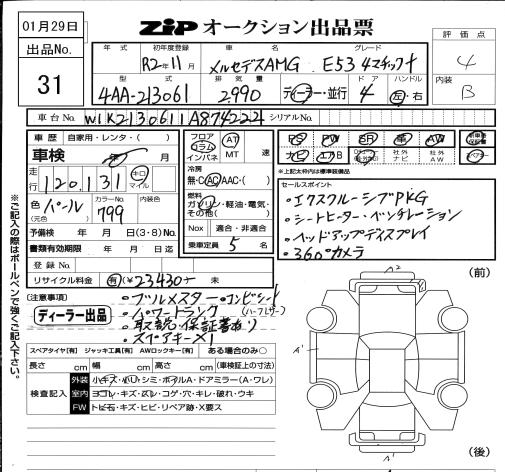 01月29日
ZIP オークション出品票
出品No. 31
年式 初年度登録 車名 グレード
R2年11月 メルセデスAMG E53 4マチック+
評価点 4
型式 排気量 ドア ハンドル
4AA-213061 2,990 ディーラー・並行 4 左・右
内装 B
車台No. W1K2130611A874224 シリアルNo.
車歴 自家用・レンタ( )
車検 年 月
走行 120,131 キロ マイル
色 パール カラーNo. 799 内装色
(元色)
予備検 年 月 日(3・8)No.
書類有効期限 年 月 日迄
登録No.
リサイクル料金 有(¥23430- 未
フロア コラム インパネ AT MT 速
冷房 無・C・AC・AAC・( )
燃料 ガソリン・軽油・電気・その他( )
Nox 適合・非適合
乗車定員 5 名
PS PW SR 革 AW 新車時保証書
ナビ エアB 社外ナビ 社外AW
※上記太枠内は標準装備品
セールスポイント
・エクスクルーシブPKG
・シートヒーター・ベンチレーション
・ヘッドアップディスプレイ
・360°カメラ
(注意事項)
ディーラー出品
・ブルメスター・コンビシート
・パワートランク (ハーフレザー)
・取説・保証書有り
・スペアキー×1
スペアタイヤ[有] ジャッキ工具[有] AWロックキー[有] ある場合のみ○
長さ cm 幅 cm 高さ cm (車検証上の寸法)
検査記入
外装 小キズ・小凹・シミ・ボアルA・ドアミラー(A・ワレ)
室内 ヨゴレ・キズ・スレ・コゲ・穴・キレ・破れ・ウキ
FW トビ石・キズ・ヒビ・リペア跡・X要ス
※ご記入の際はボールペンで強くご記入下さい。
(前)
A2
A1
A1
(後)